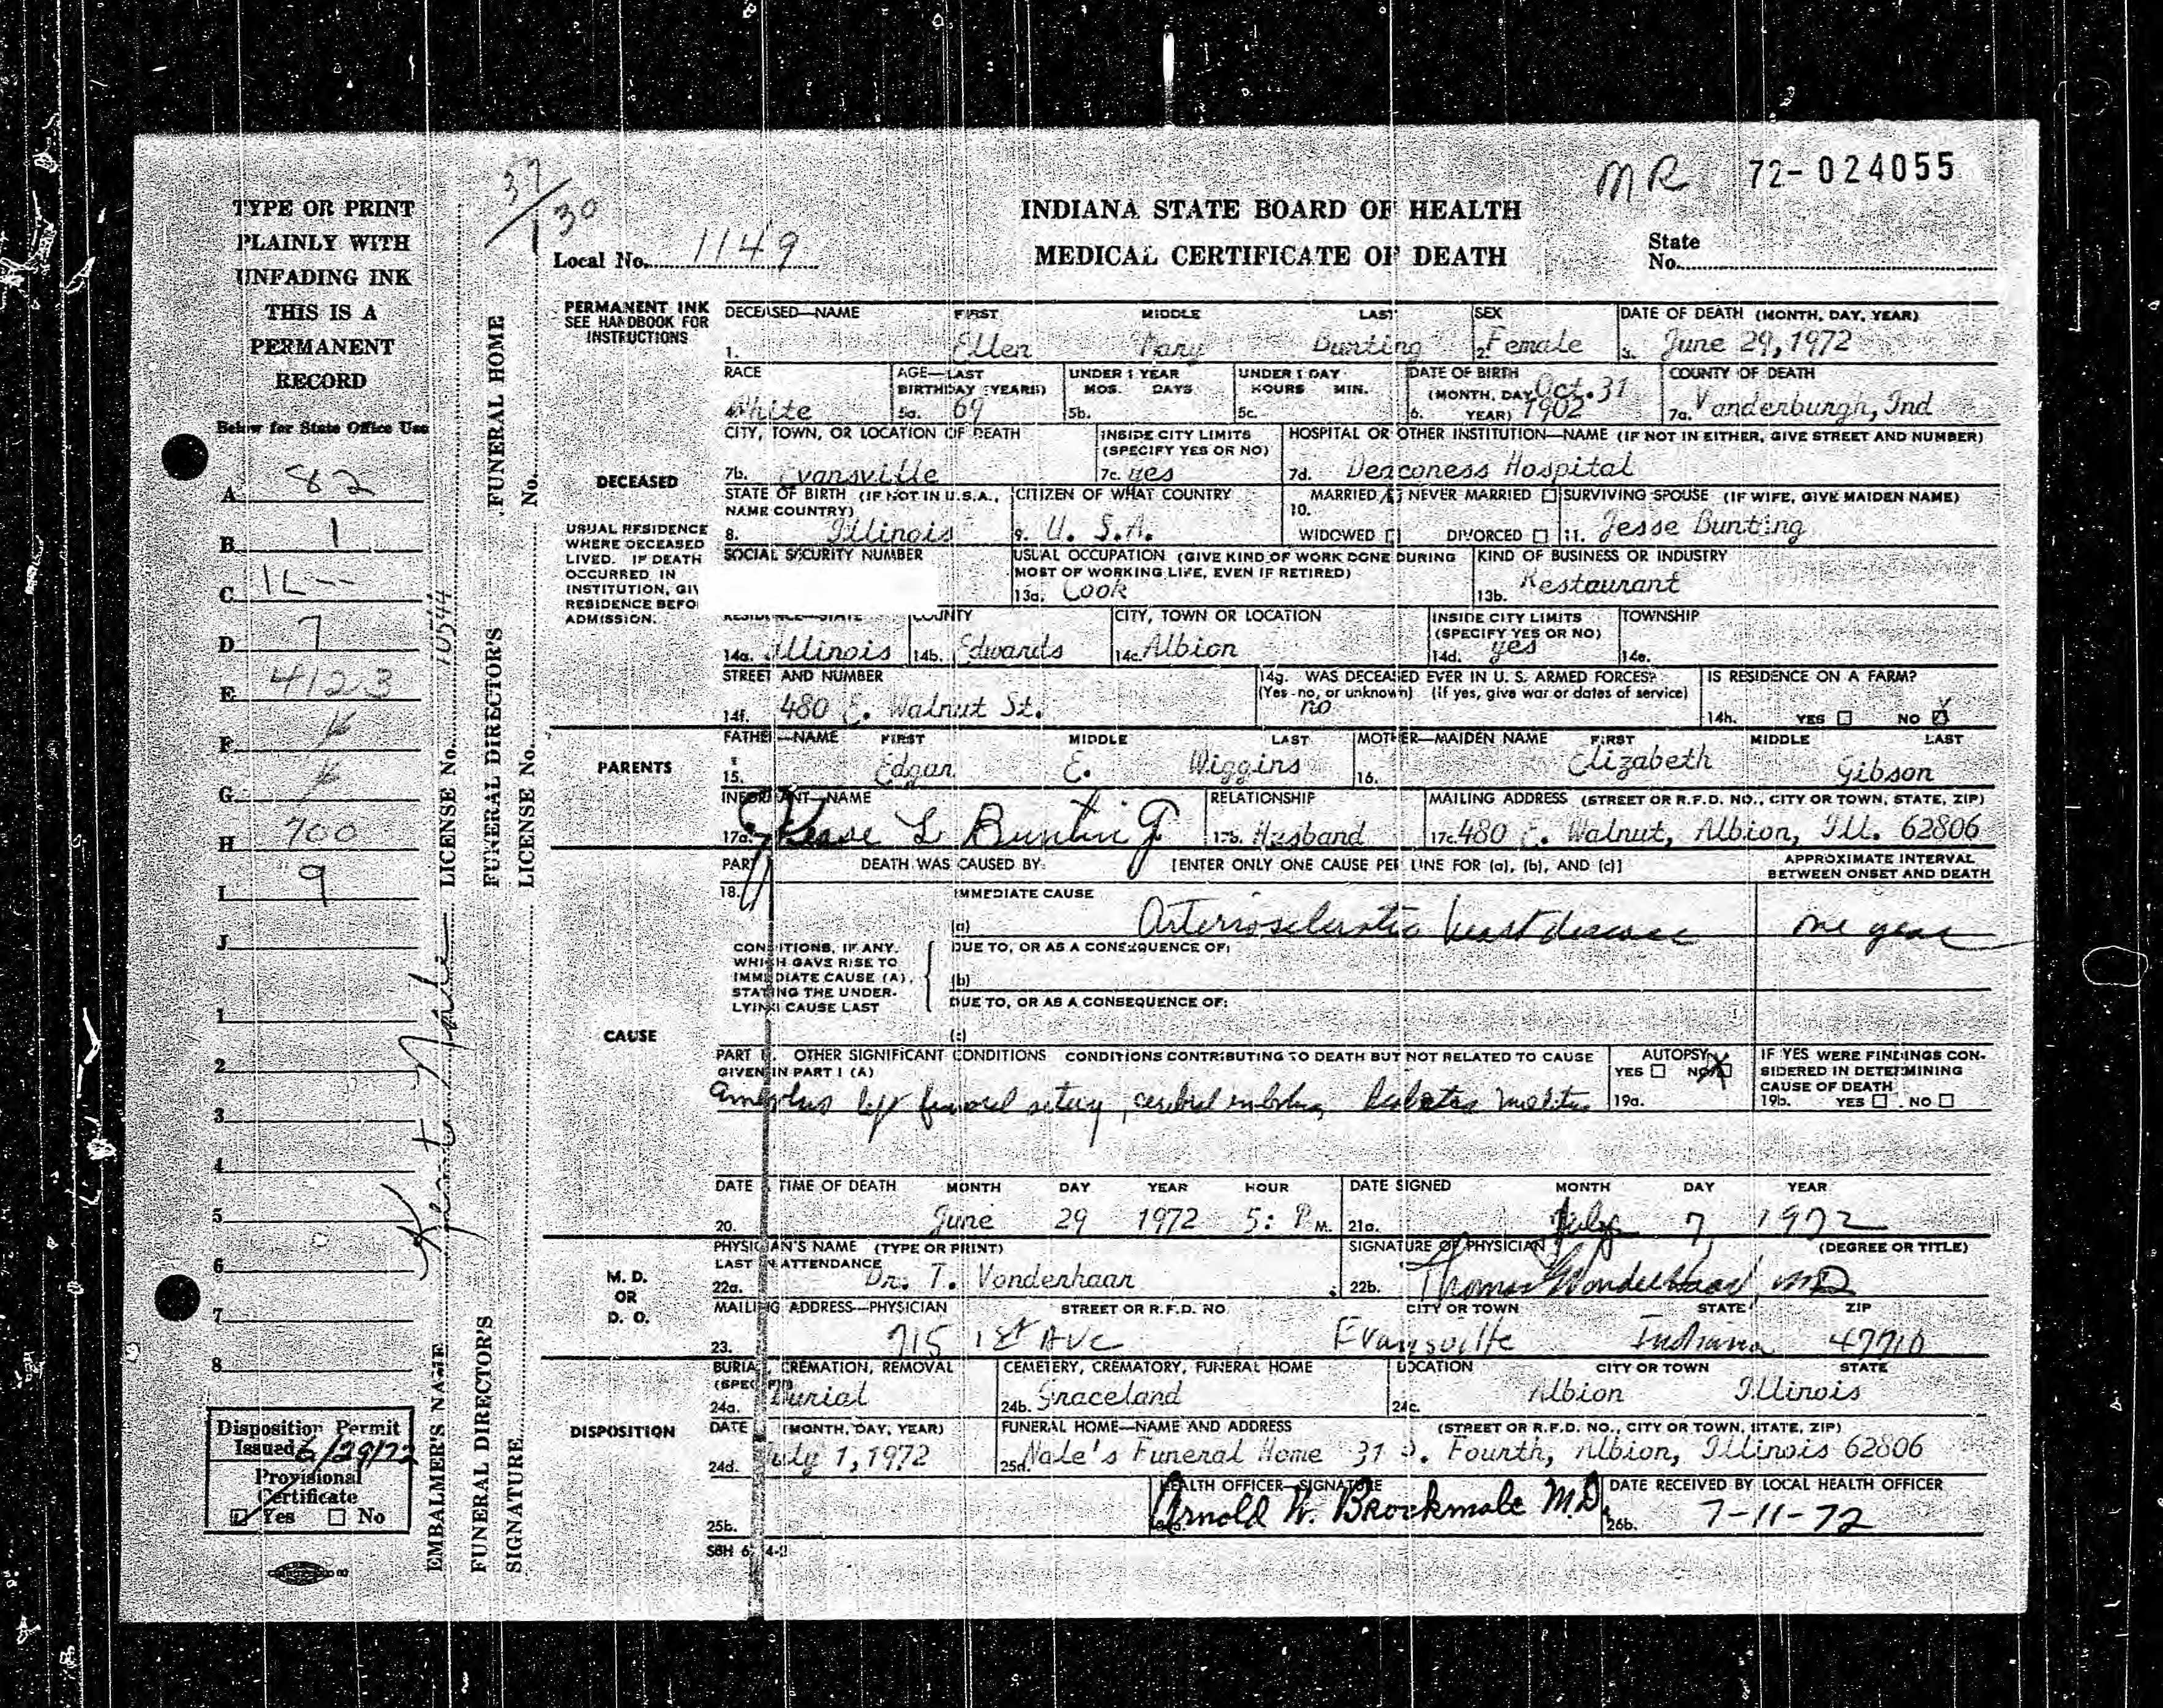 MR 72-024055
37/30
TYPE OR PRINT
PLAINLY WITH
UNFADING INK
THIS IS A
PERMANENT
RECORD
Below for State Office Use
A. 82
B. 1
C.
D. 7
E. 4123
F.
G.
H. 700
I. 9
J.
1.
2.
3.
4.
5.
6.
7.
8.
Disposition Permit
Issued 6/29/72
Provisional
Certificate
Yes No
EMBALMER'S NAME LICENSE No.
FUNERAL DIRECTOR'S FUNERAL DIRECTORS FUNERAL HOME
SIGNATURE LICENSE No. No.
INDIANA STATE BOARD OF HEALTH
Local No. 1149 MEDICAL CERTIFICATE OF DEATH State No.
PERMANENT INK
SEE HANDBOOK FOR
INSTRUCTIONS
DECEASED—NAME FIRST MIDDLE LAST SEX DATE OF DEATH (MONTH, DAY, YEAR)
1. Ellen Mary Bunting 2. Female 3. June 29, 1972
RACE AGE—LAST BIRTHDAY (YEARS) UNDER 1 YEAR MOS. DAYS UNDER 1 DAY HOURS MIN. DATE OF BIRTH (MONTH, DAY, YEAR) COUNTY OF DEATH
4. White 5a. 69 5b. 5c. 6. Oct. 31 1902 7a. Vanderburgh, Ind
CITY, TOWN, OR LOCATION OF DEATH INSIDE CITY LIMITS (SPECIFY YES OR NO) HOSPITAL OR OTHER INSTITUTION—NAME (IF NOT IN EITHER, GIVE STREET AND NUMBER)
DECEASED
7b. Evansville 7c. yes 7d. Deaconess Hospital
STATE OF BIRTH (IF NOT IN U.S.A., NAME COUNTRY) CITIZEN OF WHAT COUNTRY MARRIED NEVER MARRIED SURVIVING SPOUSE (IF WIFE, GIVE MAIDEN NAME)
8. Illinois 9. U. S.A. 10. WIDOWED DIVORCED 11. Jesse Bunting
USUAL RESIDENCE
WHERE DECEASED
LIVED. IF DEATH
OCCURRED IN
INSTITUTION, GIV
RESIDENCE BEFO
ADMISSION.
SOCIAL SECURITY NUMBER USUAL OCCUPATION (GIVE KIND OF WORK DONE DURING MOST OF WORKING LIFE, EVEN IF RETIRED) KIND OF BUSINESS OR INDUSTRY
13a. Cook 13b. Restaurant
RESIDENCE—STATE COUNTY CITY, TOWN OR LOCATION INSIDE CITY LIMITS (SPECIFY YES OR NO) TOWNSHIP
14a. Illinois 14b. Edwards 14c. Albion 14d. yes 14e.
STREET AND NUMBER 14g. WAS DECEASED EVER IN U. S. ARMED FORCES? (Yes - no, or unknown) (If yes, give war or dates of service) IS RESIDENCE ON A FARM?
14f. 480 E. Walnut St. no 14h. YES NO X
PARENTS
FATHER—NAME FIRST MIDDLE LAST MOTHER—MAIDEN NAME FIRST MIDDLE LAST
15. Edgar E. Wiggins 16. Elizabeth Gibson
INFORMANT—NAME RELATIONSHIP MAILING ADDRESS (STREET OR R.F.D. NO., CITY OR TOWN, STATE, ZIP)
17a. Jesse L Bunting 17b. Husband 17c. 480 E. Walnut, Albion, Ill. 62806
PART I DEATH WAS CAUSED BY: [ENTER ONLY ONE CAUSE PER LINE FOR (a), (b), AND (c)] APPROXIMATE INTERVAL BETWEEN ONSET AND DEATH
18. IMMEDIATE CAUSE
(a) Arteriosclerotic heart disease one year
CONDITIONS, IF ANY,
WHICH GAVE RISE TO
IMMEDIATE CAUSE (A),
STATING THE UNDER-
LYING CAUSE LAST
DUE TO, OR AS A CONSEQUENCE OF:
(b)
DUE TO, OR AS A CONSEQUENCE OF:
(c)
CAUSE
PART II. OTHER SIGNIFICANT CONDITIONS CONDITIONS CONTRIBUTING TO DEATH BUT NOT RELATED TO CAUSE GIVEN IN PART I (A)
left femoral artery, cerebral embolus, diabetes mellitus
AUTOPSY YES NO X 19a.
IF YES WERE FINDINGS CONSIDERED IN DETERMINING CAUSE OF DEATH 19b. YES NO
DATE & TIME OF DEATH MONTH DAY YEAR HOUR DATE SIGNED MONTH DAY YEAR
20. June 29 1972 5: P M. 21a. July 7, 1972
M. D.
OR
D. O.
PHYSICIAN'S NAME (TYPE OR PRINT) LAST IN ATTENDANCE SIGNATURE OF PHYSICIAN (DEGREE OR TITLE)
22a. Dr. T. Vonderhaar 22b. Thomas Vonderhaar, MD
MAILING ADDRESS—PHYSICIAN STREET OR R.F.D. NO. CITY OR TOWN STATE ZIP
23. 715 1st AVE Evansville Indiana 47710
BURIAL, CREMATION, REMOVAL (SPECIFY) CEMETERY, CREMATORY, FUNERAL HOME LOCATION CITY OR TOWN STATE
24a. Burial 24b. Graceland 24c. Albion Illinois
DISPOSITION
DATE (MONTH, DAY, YEAR) FUNERAL HOME—NAME AND ADDRESS (STREET OR R.F.D. NO., CITY OR TOWN, STATE, ZIP)
24d. July 1, 1972 25a. Nale's Funeral Home 31 S. Fourth, Albion, Illinois 62806
HEALTH OFFICER—SIGNATURE DATE RECEIVED BY LOCAL HEALTH OFFICER
25b. Arnold W. Brockmole M.D. 26b. 7-11-72
SBH 6